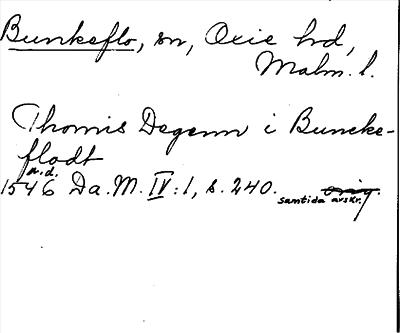 Bunkeflo, sn, Oxie hd,
Malm. l.
Thomis Degenn i Buncke-
flodt
u.d.
1546 Da. M. IV:1, s. 240. orig.
samtida avskr.